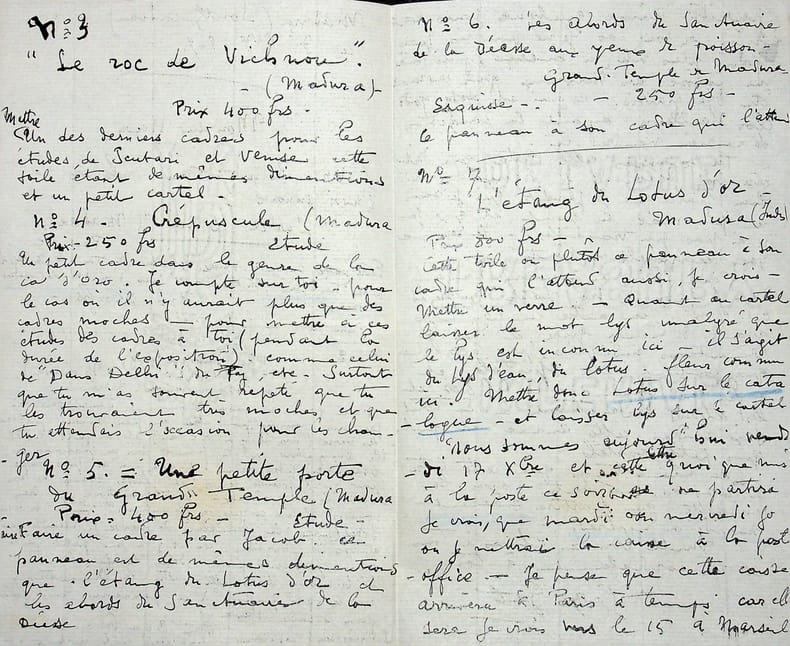 No 3
"Le roc de Vichnou".
- (Madura) -
Prix 400 frs -
Mettre
Un des derniers cadres pour les
études de Scutari et Venise cette
toile étant de mêmes dimentions
et un petit cartel -
No 4 - Crépuscule (Madura
Prix - 250 frs Etude
Un petit cadre dans le genre de la
Ca d'Oro. Je compte sur toi - pour
le cas où il n'y aurait plus que des
cadres moches - pour mettre à ces
études des cadres à toi (pendant la
durée de l'exposition) comme celui
de "Dans Delhi" du etc - Surtout
que tu m'as souvent répété que tu
les trouvais très moches, et que
tu attendais l'occasion pour les chan-
- ger
No 5. = Une petite porte
du Grand Temple (Madura
Prix = 400 frs - Etude -
Faire un cadre par Jacob. ce
panneau est de mêmes dimentions
que l'étang du Lotus d'or et
les abords du Sanctuaire de la
Déesse
No 6. Les abords du Sanctuaire
de la Déesse aux yeux de poisson -
Grand Temple de Madura
Esquisse - - - 250 frs -
le panneau à son cadre qui l'attend
No 7
L'étang du Lotus d'or -
Madura (Indes)
Prix 800 frs -
Cette toile ou plutôt ce panneau à son
cadre qui l'attend aussi, je crois -
Mettre un verre - Quant au cartel
laisser le mot lys malgré que
le lys est inconnu ici - il s'agit
du lys d'eau, du lotus - fleur commune
ici. Mettre donc Lotus sur le cata
- logue - et laisser lys sur le cartel
Nous sommes aujourd'hui vendre
- di 17 Xbre et cette lettre quoique mis
à la poste ce soir ne partira
je crois, que mardi ou mercredi jo
où je mettrai la caisse à la post
- office - Je pense que cette caisse
arrivera à Paris à temps car el
sera je crois vers le 15 à Marseil